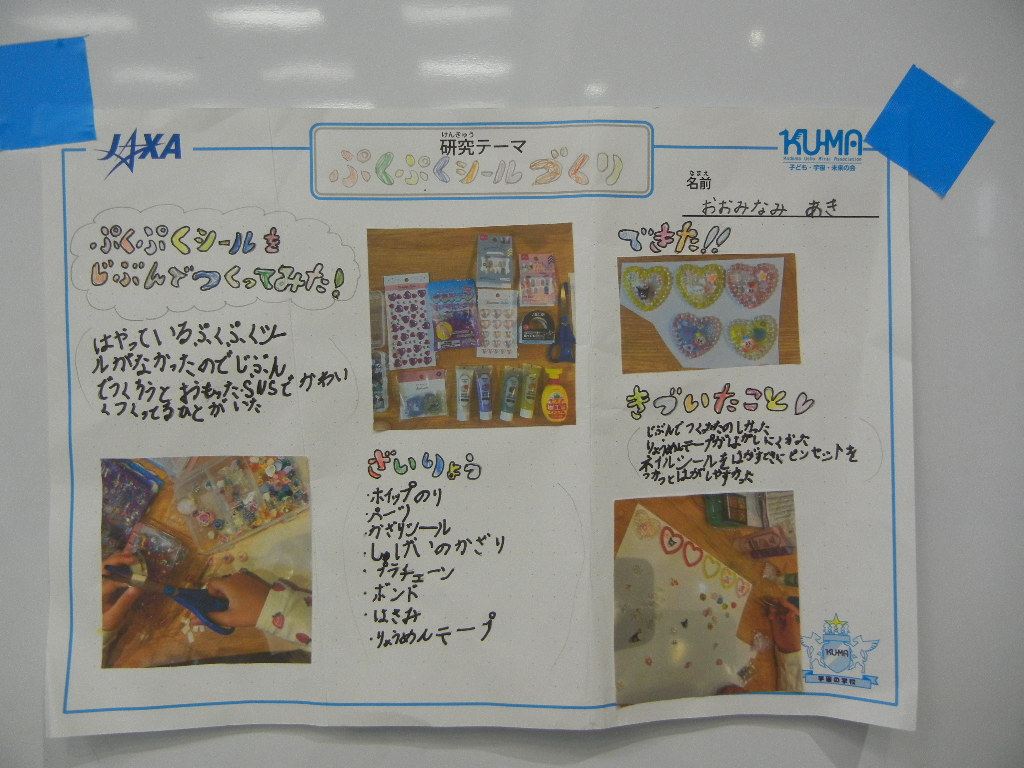 JAXA
けんきゅう
研究テーマ
ぷくぷくシールづくり
KUMA
Kodomo Uchu Mirai Association
子ども・宇宙・未来の会
なまえ
名前
おおみなみ あき
ぷくぷくシールを
じぶんでつくってみた!
はやっているぷくぷくシー
ルがなかったのでじぶん
でつくろうとおもったSNSでかわい
くつくってるひとがいた
ざいりょう
・ホイップのり
・パーツ
・かざりシール
・しゅげいのかざり
・プラチェーン
・ボンド
・はさみ
・りょうめんテープ
できた!!
きづいたこと
じぶんでつくるたのしかった
りょうめんテープがはがしにくかった
ネイルシールをはがすときにピンセットを
つかうとはがしやすかった
KUMA
宇宙の学校